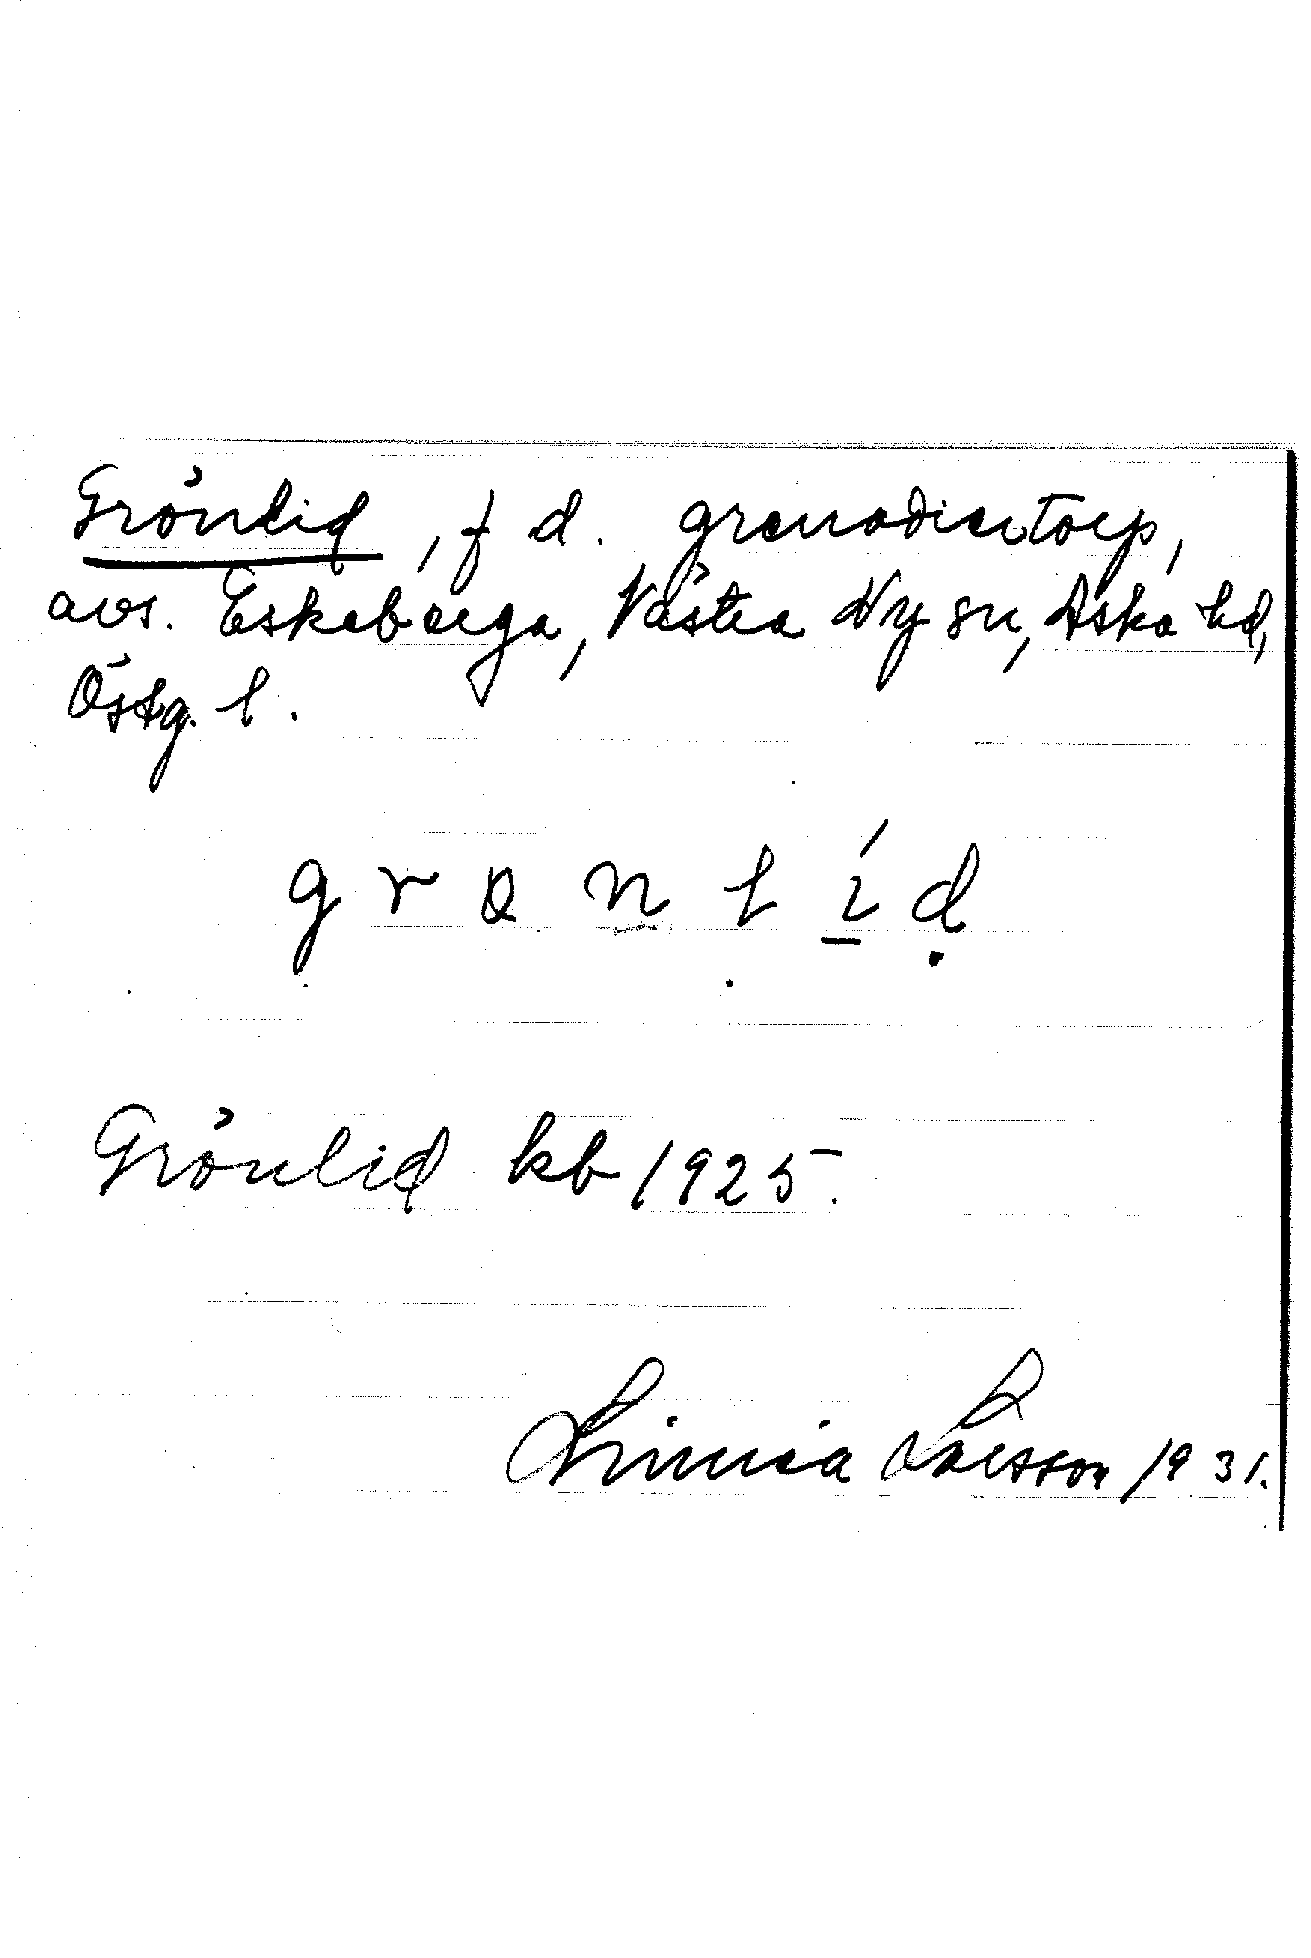 Grönlid, f d. grenadiertorp,
avs. Eskeberga, Västra Ny sn, Aska hd,
Östg. l.
g r ɷ n l í d
Grönlid kb 1925.
Linnea Larsson 1931.